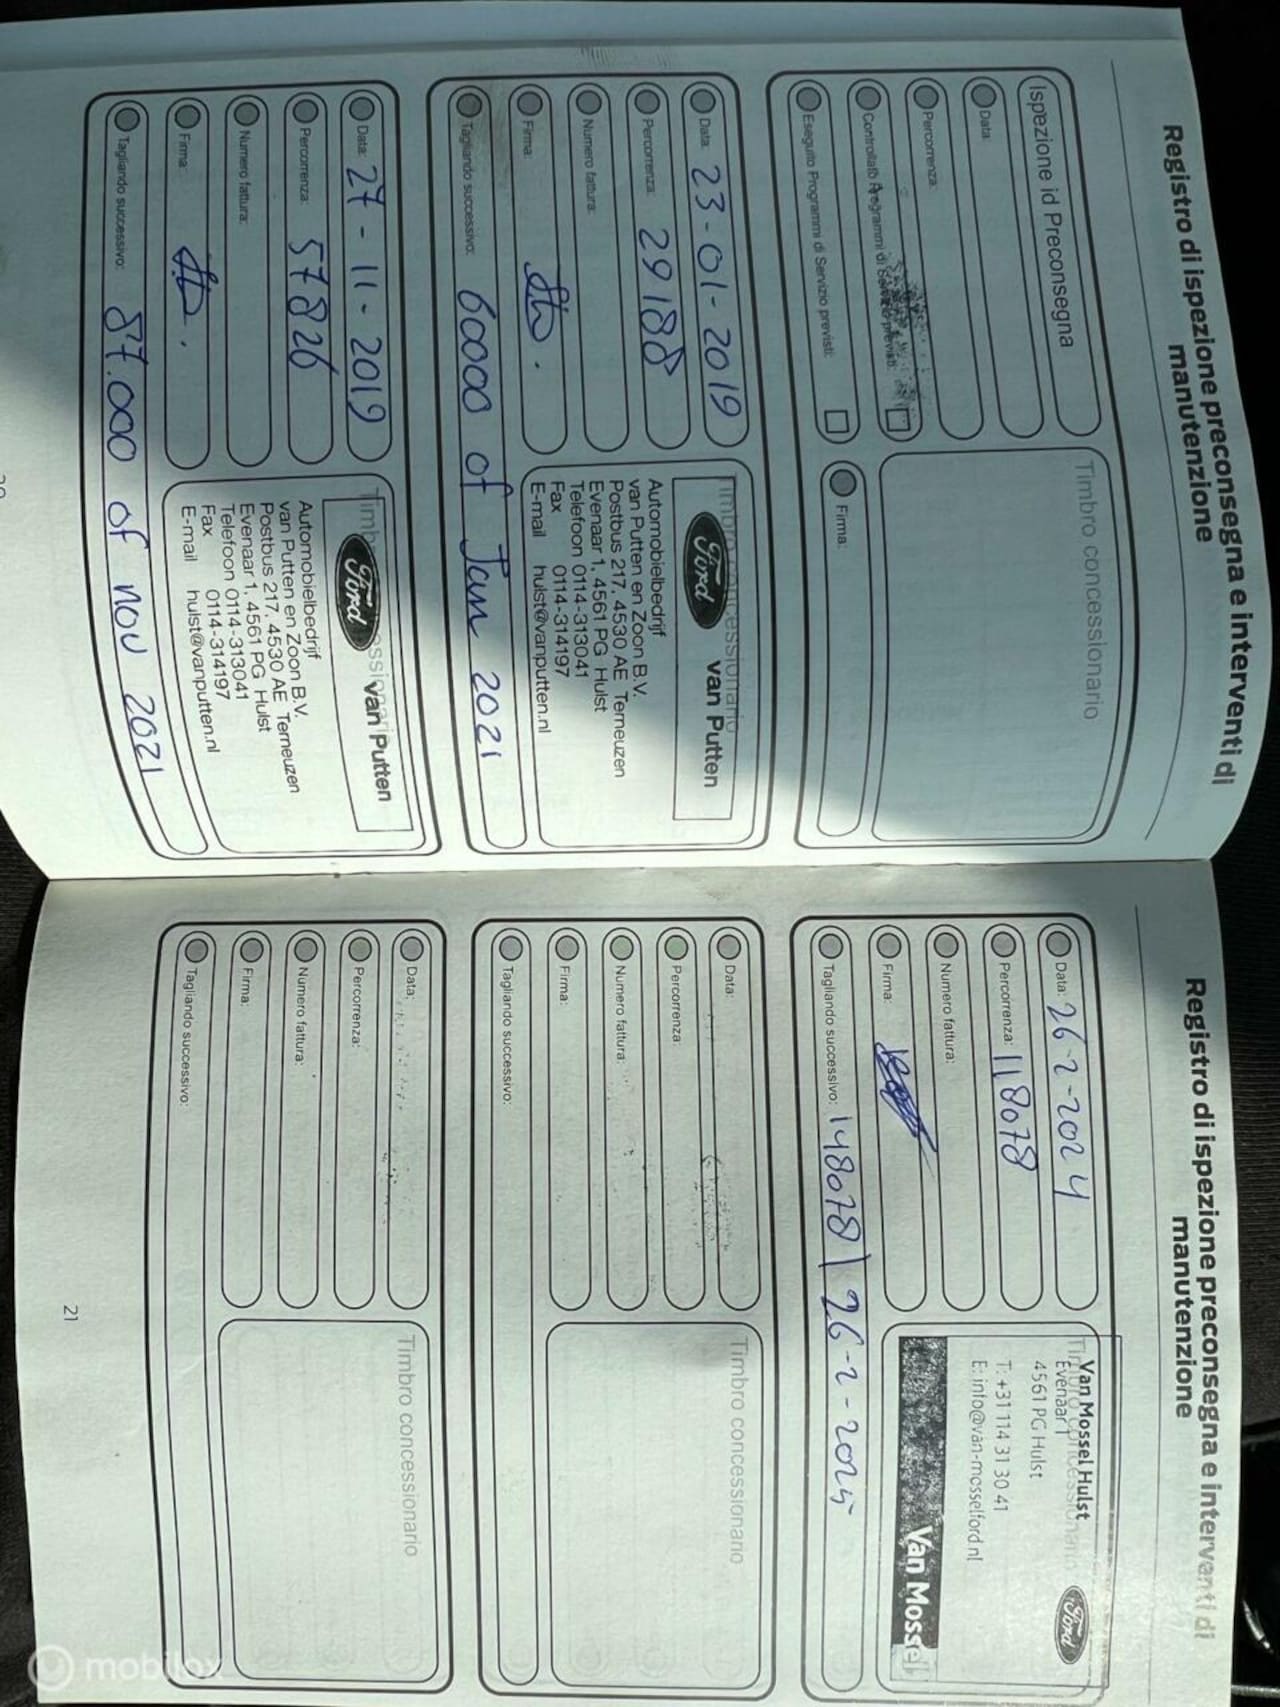 Registro di ispezione preconsegna e interventi di
manutenzione
Ispezione id Preconsegna
Data:
Percorrenza:
Controllato Programmi di Servizio previsti:
Eseguito Programmi di Servizio previsti:
Timbro concessionario
Firma:
Data: 23-01-2019
Percorrenza: 29188
Numero fattura:
Firma:
Tagliando successivo: 60000 of Jan 2021
Timbro concessionario
Ford
van Putten
Automobielbedrijf
van Putten en Zoon B.V.
Postbus 217, 4530 AE Terneuzen
Evenaar 1, 4561 PG Hulst
Telefoon 0114-313041
Fax 0114-314197
E-mail hulst@vanputten.nl
Data: 27-11-2019
Percorrenza: 57826
Numero fattura:
Firma:
Tagliando successivo: 87.000 of nov 2021
Timbro concessionario
Ford
van Putten
Automobielbedrijf
van Putten en Zoon B.V.
Postbus 217, 4530 AE Terneuzen
Evenaar 1, 4561 PG Hulst
Telefoon 0114-313041
Fax 0114-314197
E-mail hulst@vanputten.nl
Registro di ispezione preconsegna e interventi di
manutenzione
Data: 26-2-2024
Percorrenza: 118078
Numero fattura:
Firma:
Tagliando successivo: 148078 / 26-2-2025
Timbro concessionario
Van Mossel Hulst
Evenaar 1
4561 PG Hulst
T: +31 114 31 30 41
E: info@van-mosselford.nl
Ford
Van Mossel
Data:
Percorrenza:
Numero fattura:
Firma:
Tagliando successivo:
Timbro concessionario
Data:
Percorrenza:
Numero fattura:
Firma:
Tagliando successivo:
Timbro concessionario
21
mobilox